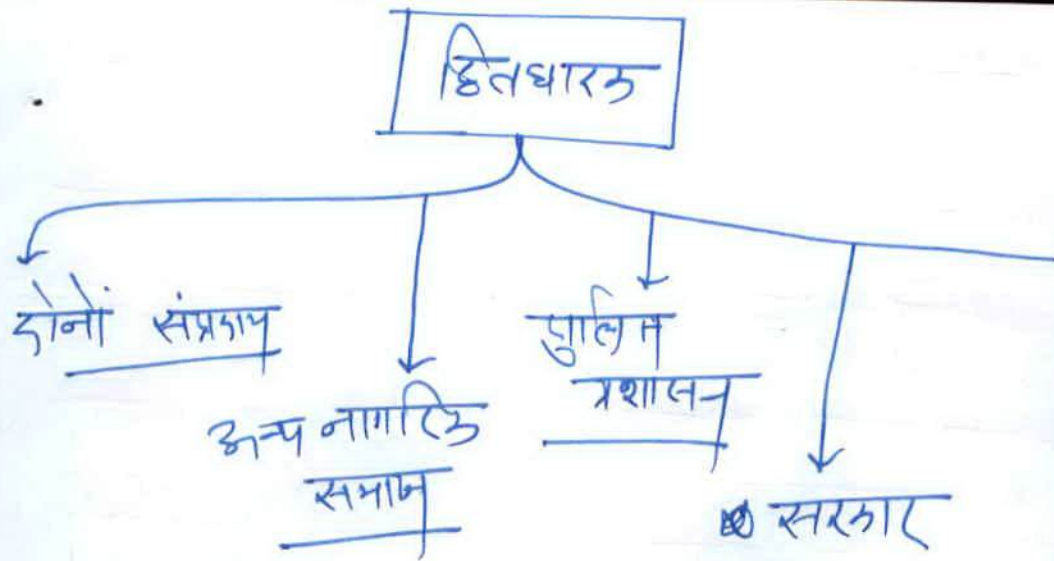 हितधारक
दोनों संप्रदाय
अन्य नागरिक
समाज
पुलिस
प्रशासन
सरकार